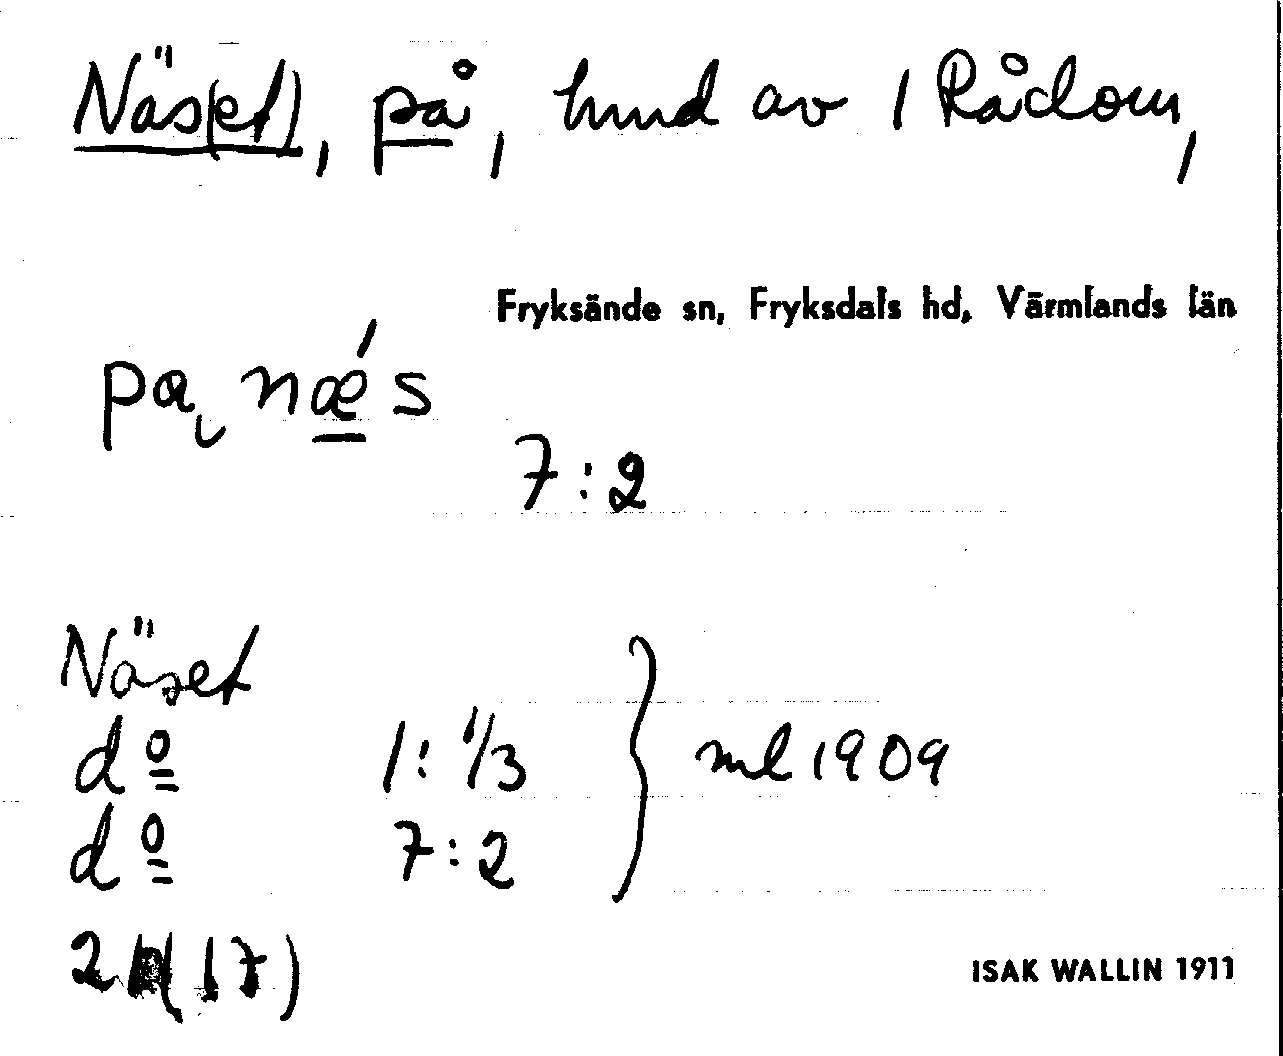 Näs(et), på, hmd av 1 Rådom,
Fryksände sn, Fryksdals hd, Värmlands län
pa, næ´s
7:2
Näset
dº 1:1/3 } ml 1909
dº 7:2
(17)
ISAK WALLIN 1911